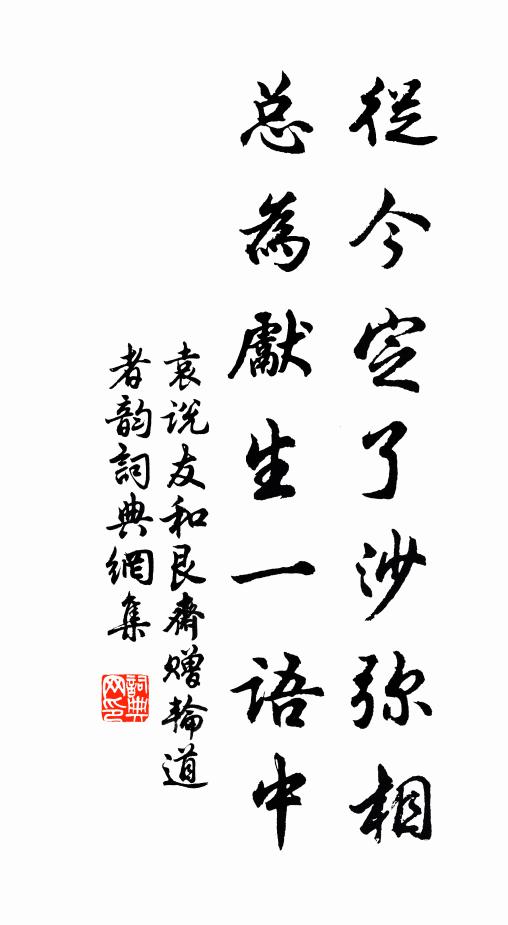 從今定了沙弥相
总為獻生一語中
袁说友和艮齋赠輪道
者韵詞典網集
詞典
网印